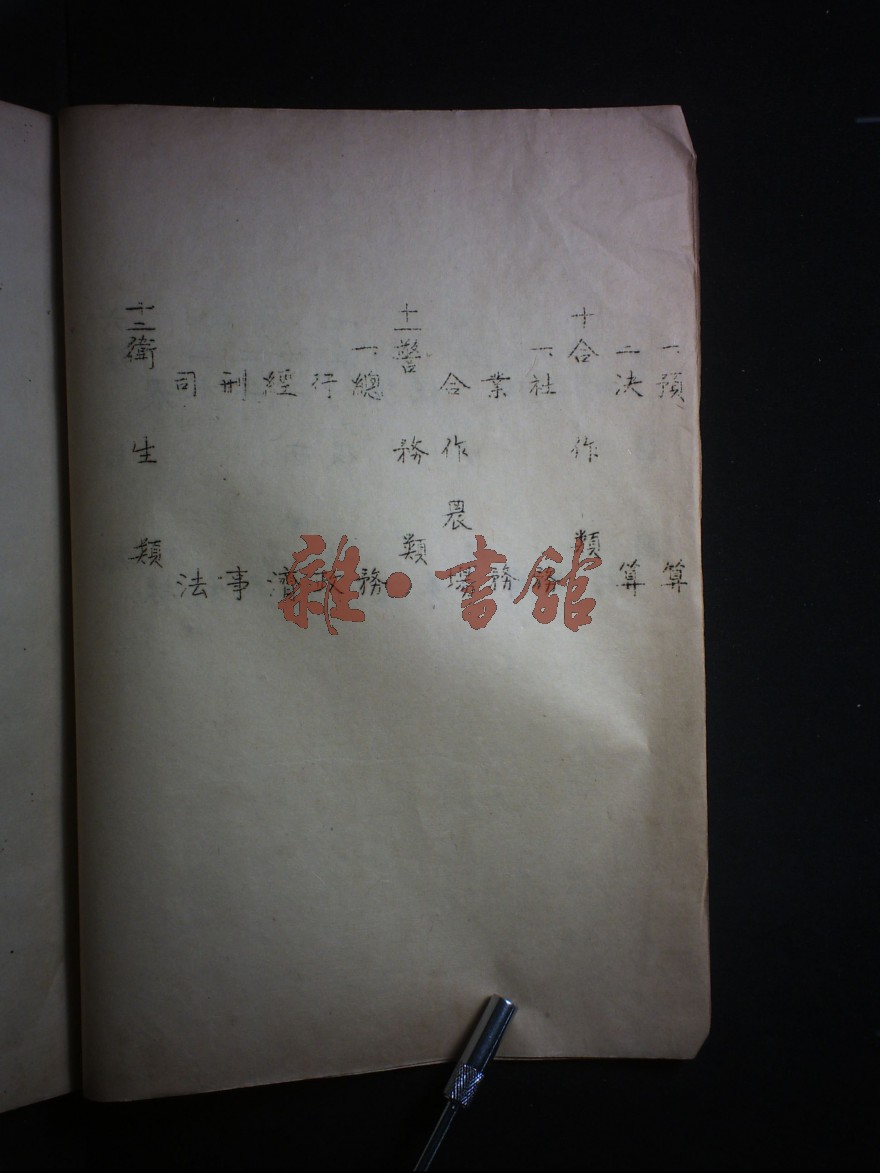 一、預算
二、決算
十合作類
一、社務
業務
合作農場
十一警務類
一、總務
行政
經濟
刑事
司法
十二衛生類
雜·書館